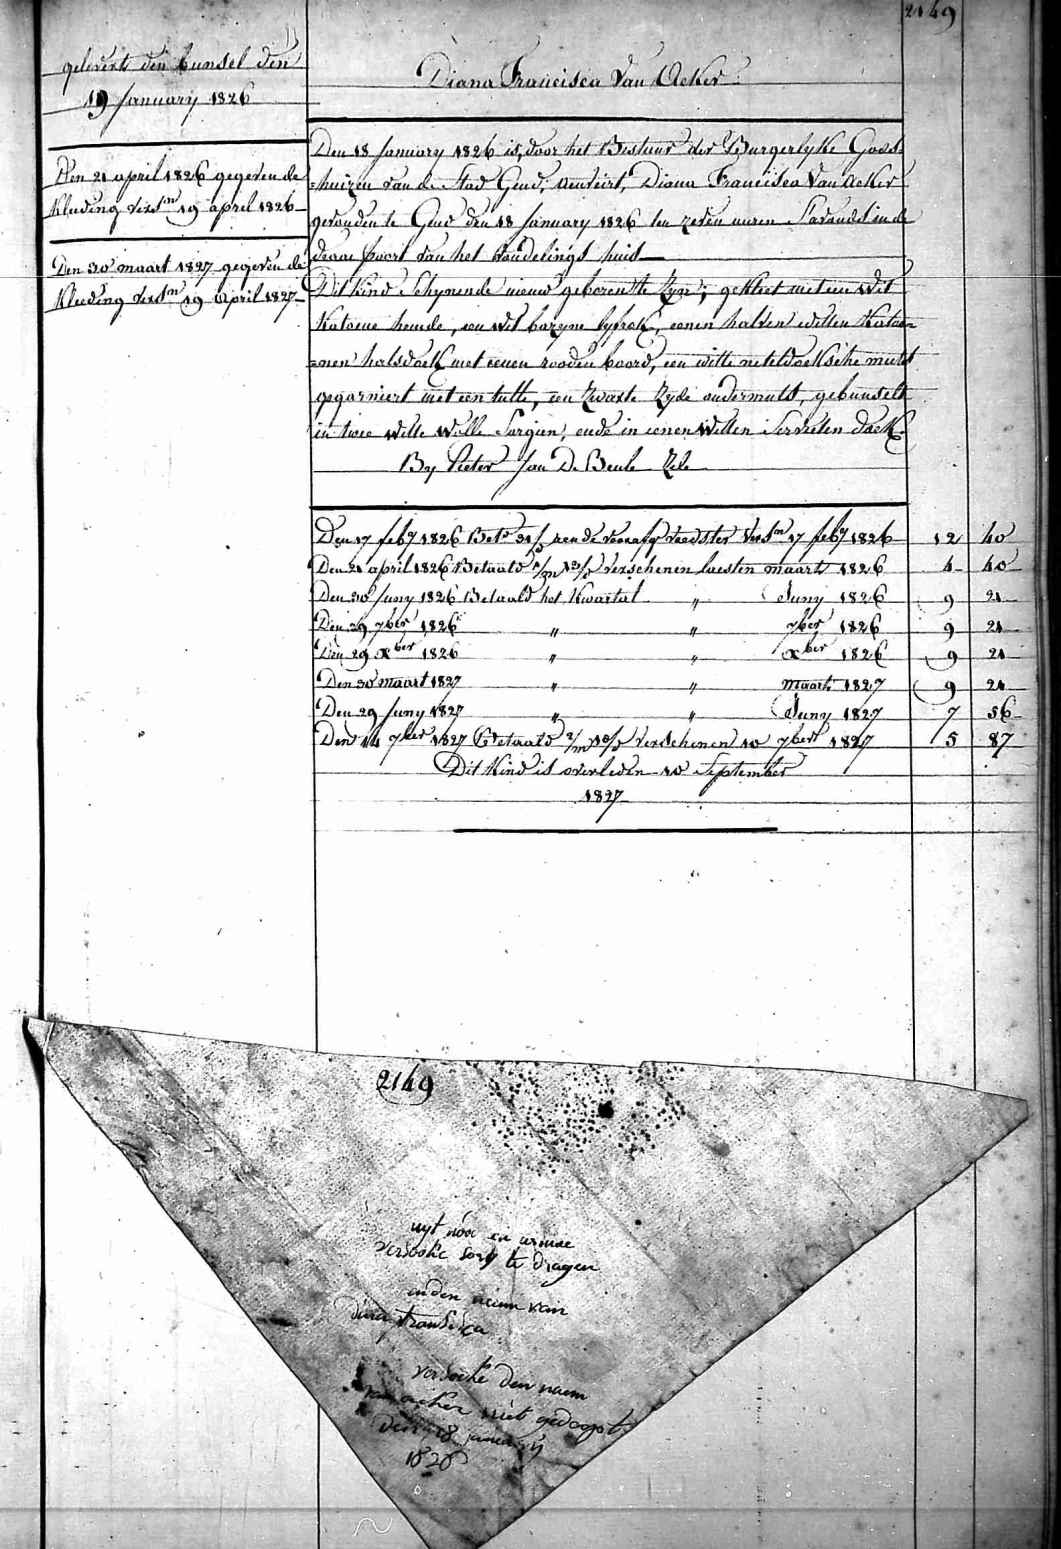 2149
gelevert den bunsel den
19 January 1826
Diana Francisca Van Acker
Den 18 January 1826 is, door het Bestuur der Burgerlyke Gods=
=huizen van de Stad Gend, aenveirt, Diana Francisca Van Acker
gevonden te Gend den 18 January 1826 ten zeven uuren S'avonds in de
draai poort van het vondelings huis
Dit kind Schynende nieuw geboren te Zyn; gekleet met een wit
katoene hemde, een wit bazyne lyfrok, eenen halven witten Katoe=
=nen halsdoek met eenen rooden boord, een witte neteldoeksche muts
gegarniert met een tulle, een Zwarte Zyde ondermuts, gebunselt
in twee witte wolle Sargien, ende in eenen Witten Servieten doek.
By Pieter Jan De Beule Zele
Den 21 april 1826 gegeven de
kleeding versn 19 april 1826
Den 30 maart 1827 gegeven de
kleeding versn 19 April 1827
Den 17 feby 1826 Bet versm 17 feby 1826 12 40
Den 21 april 1826 Betaald verschenen laesten maart 1826 4 40
Den 30 Juny 1826 Betaald het Kwartal " Juny 1826 9 21
Den 29 7ber 1826 " " 7ber 1826 9 21
Den 29 xber 1826 " " xber 1826 9 21
Den 30 maart 1827 " " maart 1827 9 21
Den 29 Juny 1827 " " Juny 1827 7 56
Den 14 7ber 1827 Betaald verschenen 10 7ber 1827 5 87
Dit Kind is overleden 10 September
1827
2149
uyt en armoe
versoeke sorg te dragen
in den naem van
francisca
versoeke den naem
van acker niet gedoopt
den 18 january
1826